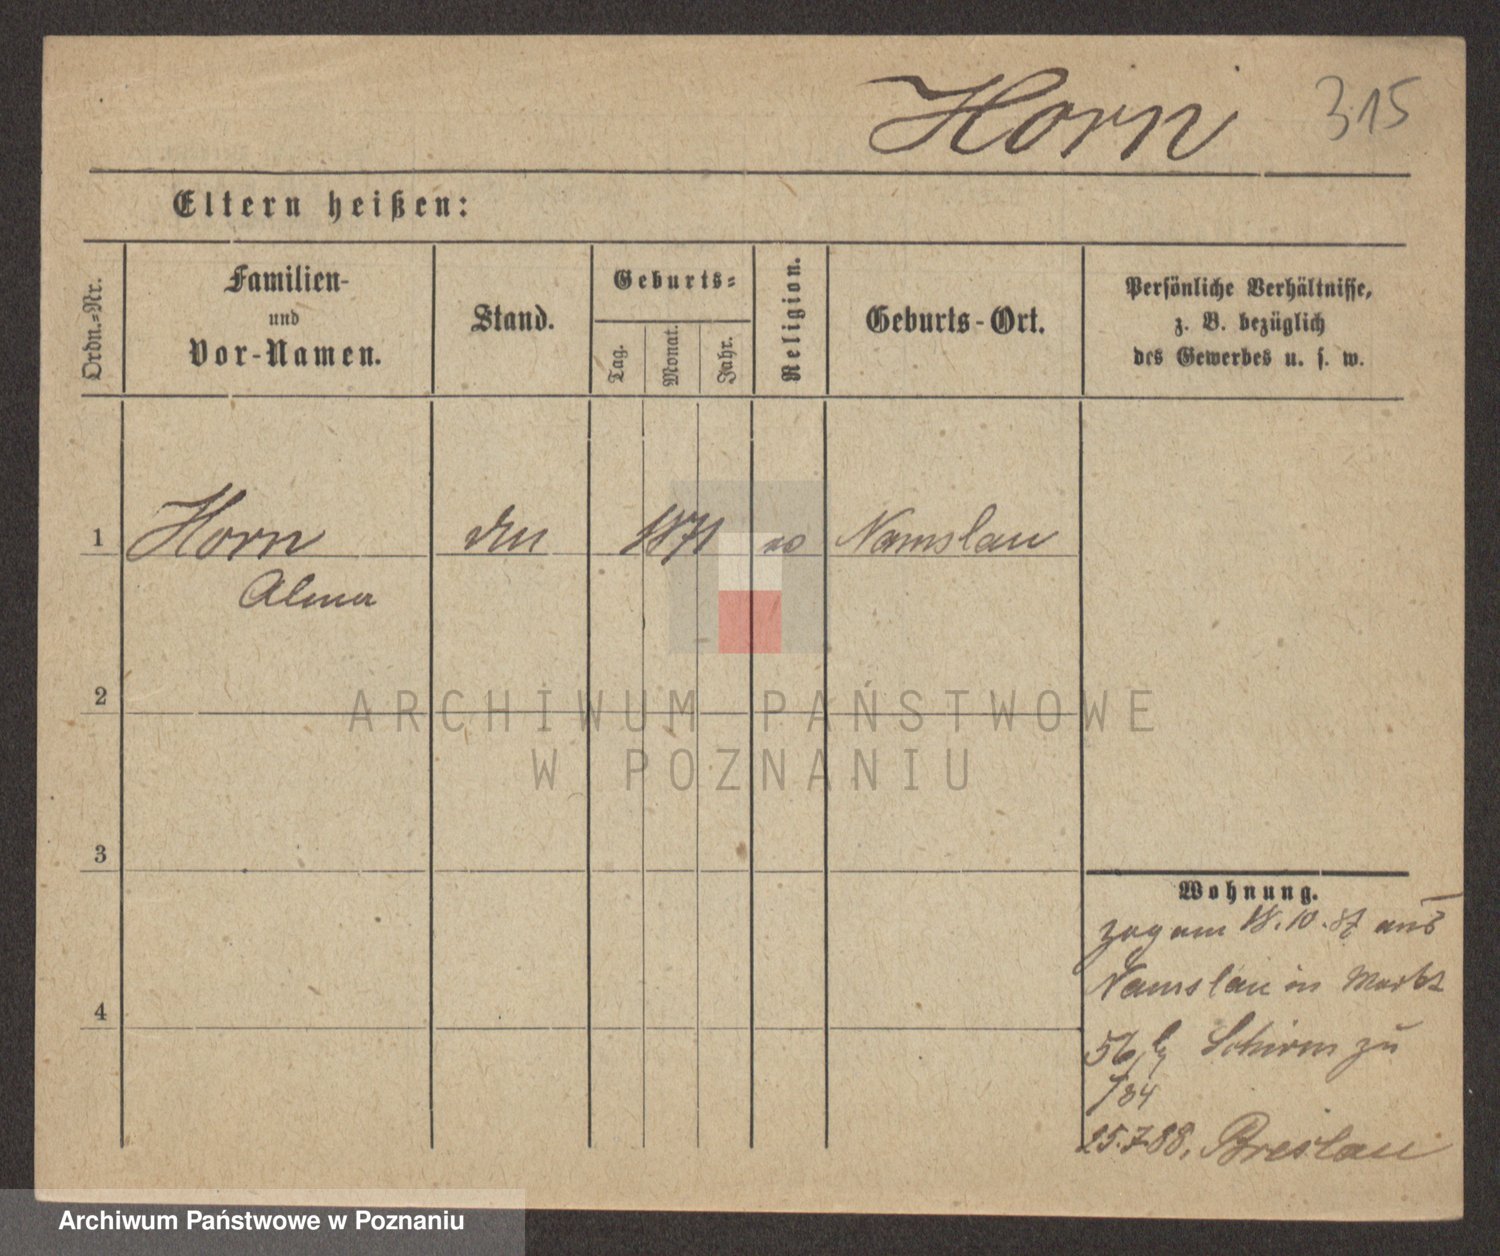 Horn 315
Eltern heißen:
Ordn.-Nr.
Familien-
und
Vor-Namen.
Stand.
Geburts-
Tag.
Monat.
Jahr.
Religion.
Geburts-Ort.
Persönliche Verhältnisse,
z. B. bezüglich
des Gewerbes u. s. w.
1 Horn 1871 Namslau
Alma
2
3
4
Wohnung.
zog am 18.10.87 aus
Namslau in Markt
56, Schirm zu
784
25.7.88. Breslau
ARCHIWUM PAŃSTWOWE
W POZNANIU
Archiwum Państwowe w Poznaniu